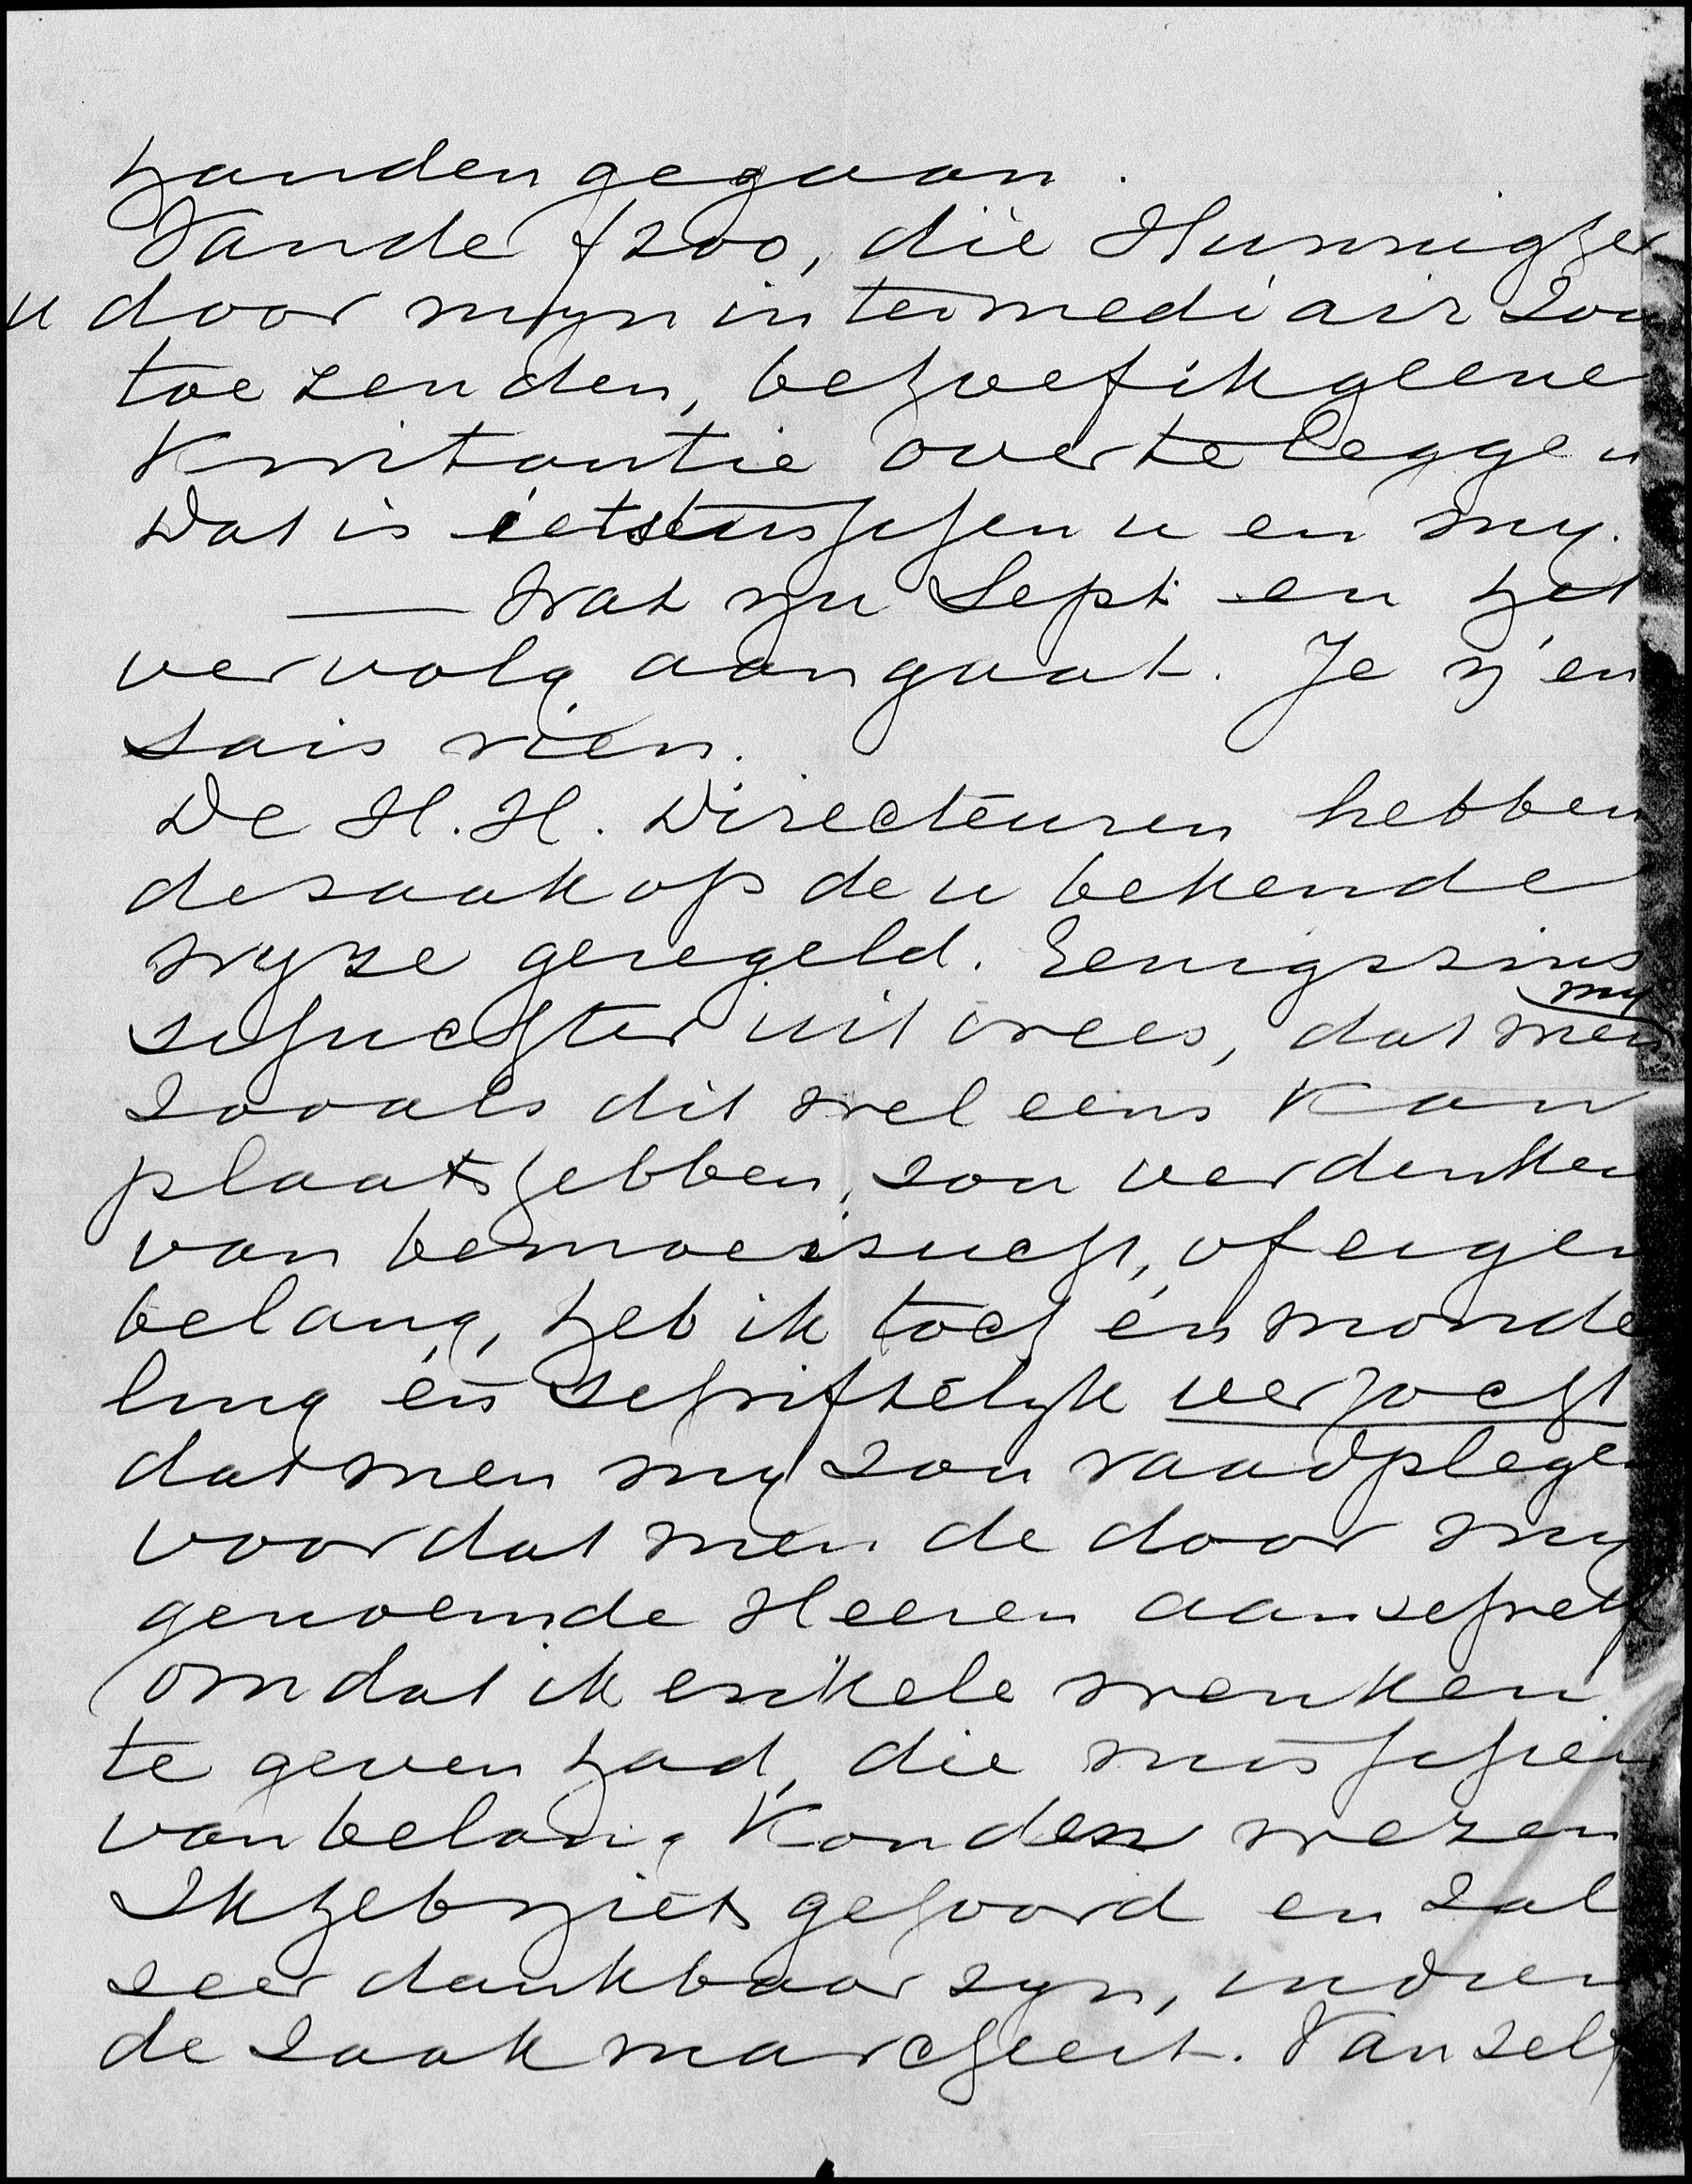 handen gegaan.
Van de f200, die Hunnigher
u door myn intermediair zou
toezenden, behoef ik geene
Kwitantie over te leggen
Dat is iets tusschen u en my.
— Wat nu Sept en het
vervolg aangaat. Je n'en
sais rien.
De H.H. Directeuren hebben
de zaak op de u bekende
wyze geregeld. Eenigszins
schuchter uit vrees, dat men my
zooals dit wel eens kan
plaats hebben, zou verdenken
van bemoeizucht, of eigen
belang, heb ik toch én monde
ling én schriftelyk verzocht
dat men my zou raadplegen
voordat men de door my
genoemde Heeren aanschreef
omdat ik enkele wenken
te geven had, die misschien
van belang konden wezen
Ik heb niets gehoord en zal
zeer dankbaar zyn, indien
de zaak marcheert. Vanzelf